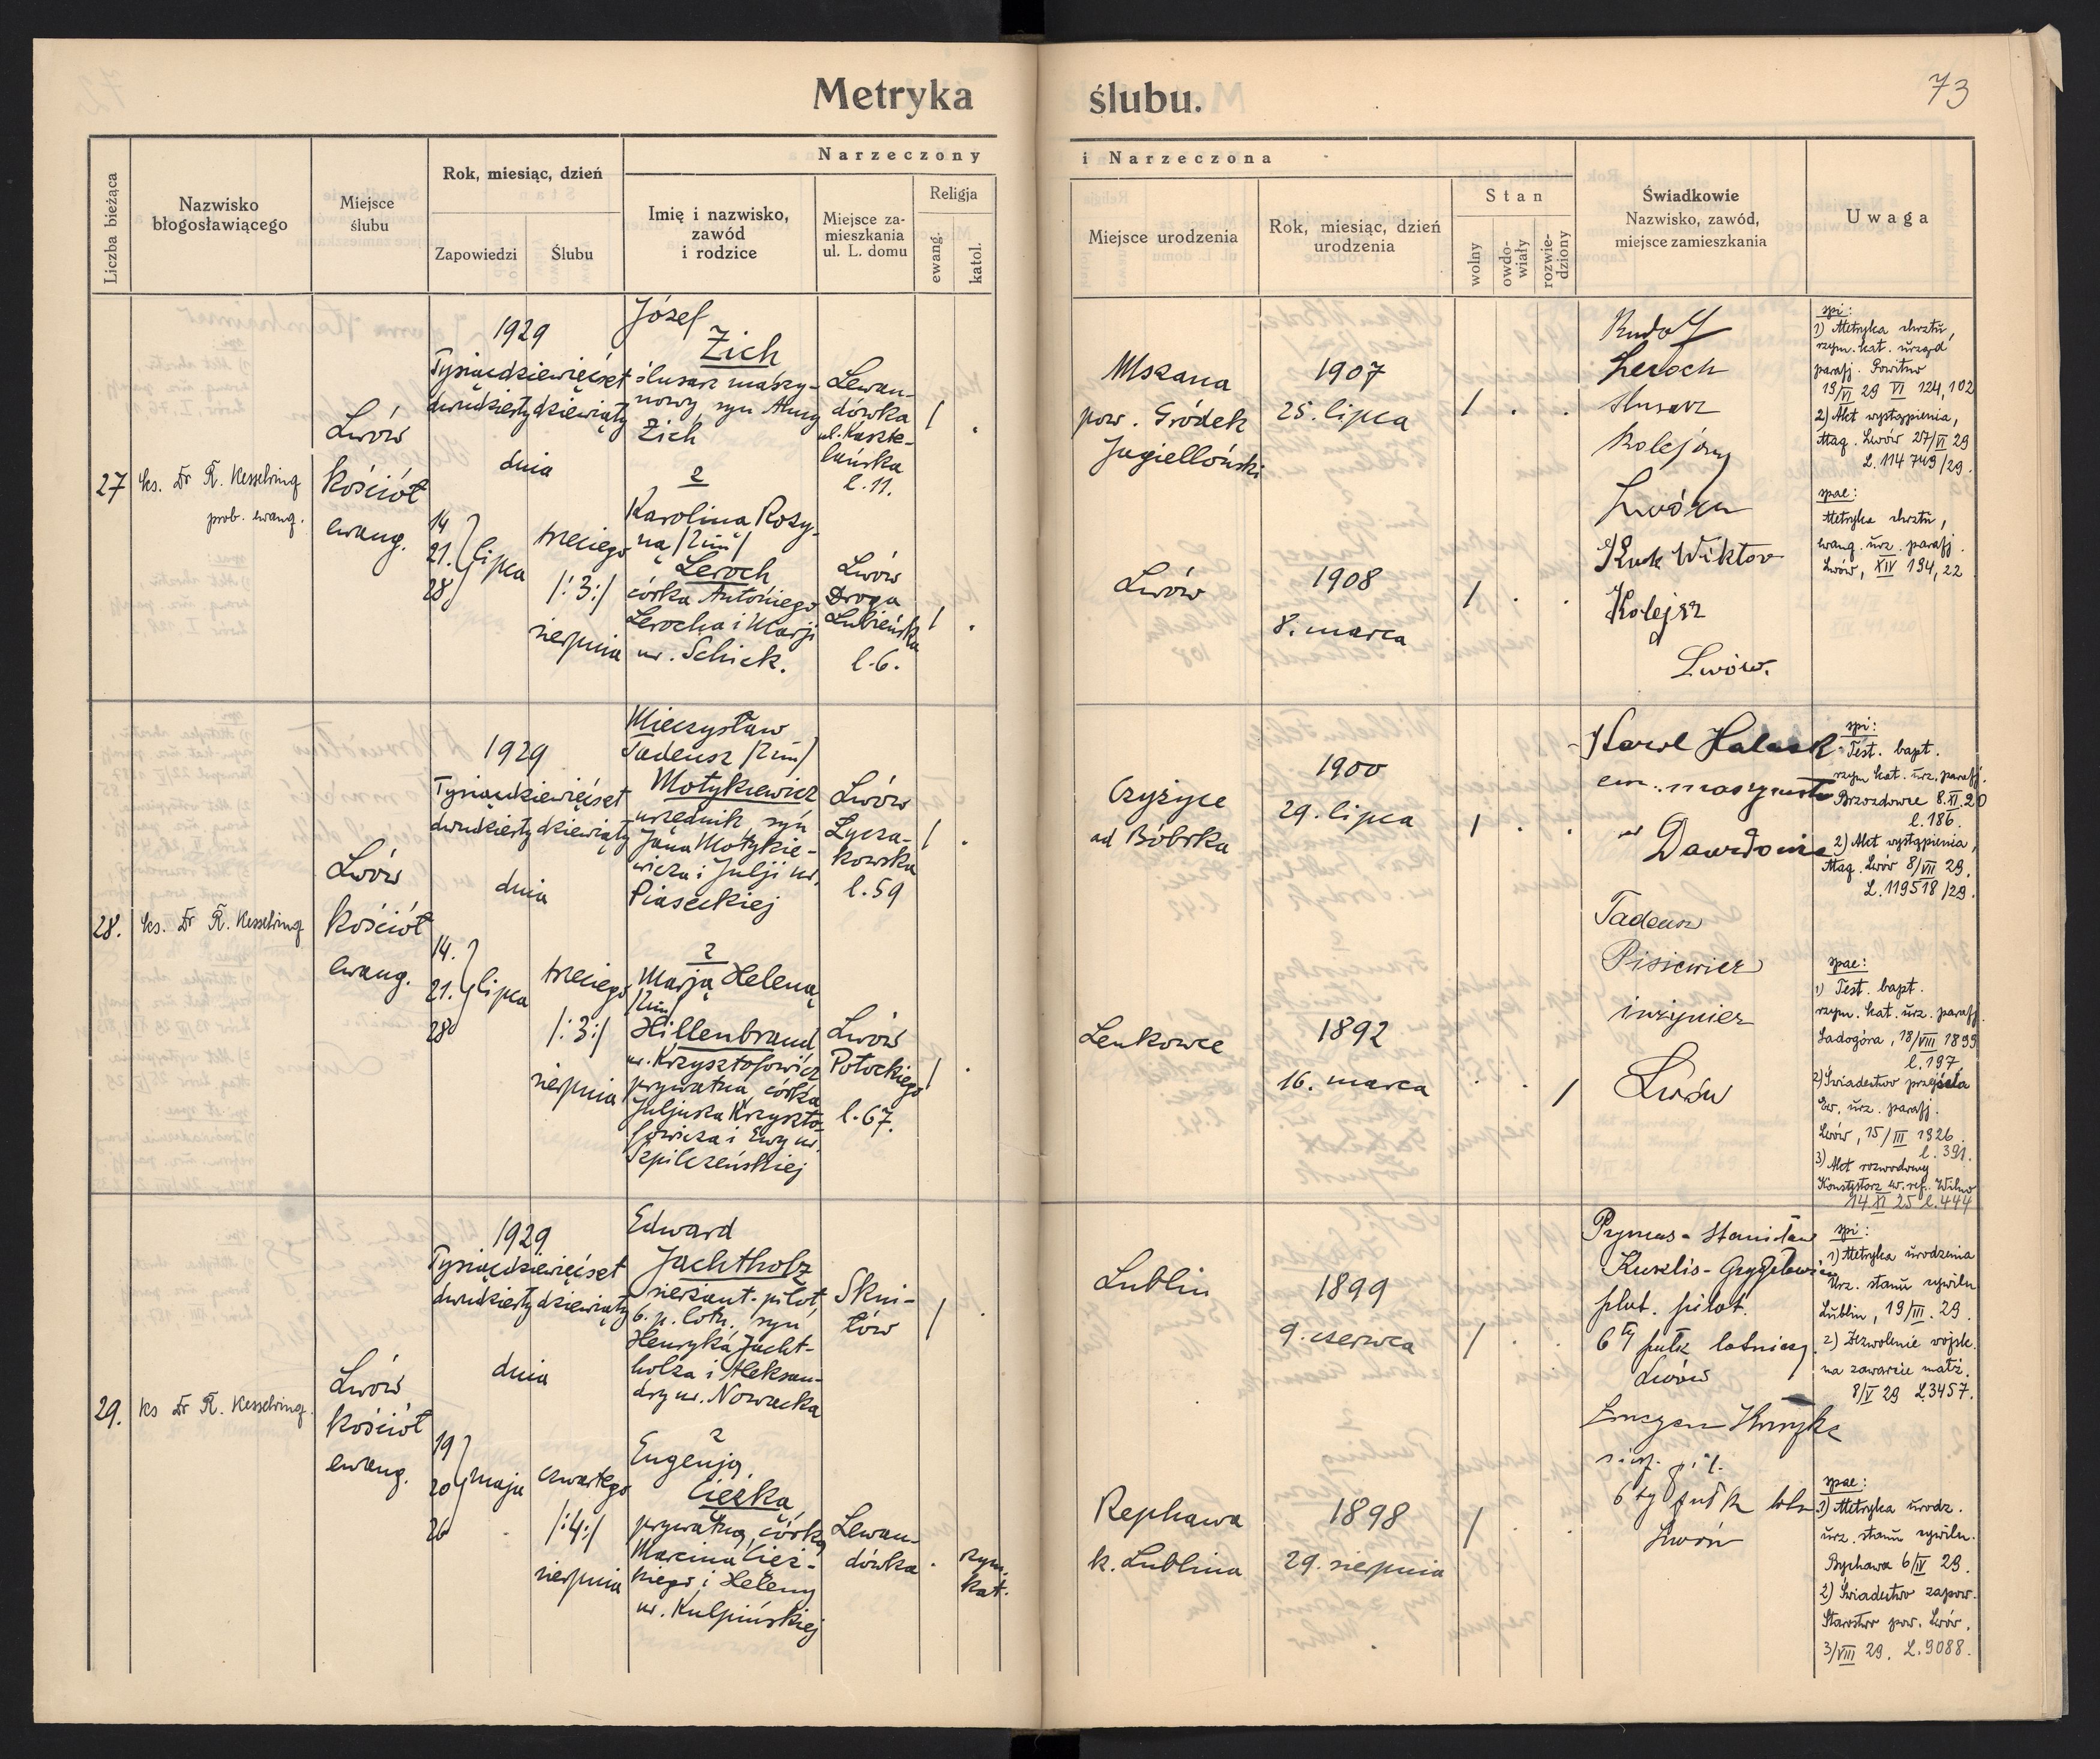 Metryka ślubu.
73
Liczba bieżąca
Nazwisko
błogosławiącego
Miejsce
ślubu
Rok, miesiąc, dzień
Zapowiedzi
Ślubu
Narzeczony
Imię i nazwisko,
zawód
i rodzice
Miejsce za-
mieszkania
ul. L. domu
Religja
ewang.
katol.
i Narzeczona
Miejsce urodzenia
Rok, miesiąc, dzień
urodzenia
Stan
wolny
owdo-
wiały
rozwie-
dziony
Świadkowie
Nazwisko, zawód,
miejsce zamieszkania
Uwaga
27
ks. Dr R. Kesselring
prob. ewang.
Lwów
kościół
ewang.
1929
Tysiącdziewięćset
dwudziesty dziewiąty
dnia
14
21. lipca
28
trzeciego
/:3:/
sierpnia
Józef
Zich
ślusarz maszy-
nowy, syn Anny
Zich
z
Karolina Rozy-
ną /2im/
Leroch
córka Antoniego
Lerocha i Marji
ur. Schick.
Lewan-
dówka
ul. Kaszte-
lańska
l. 11.
Lwów
Droga
Lubieńska
l. 6.
Mszana
pow. Gródek
Jagielloński
1907
25. lipca
Lwów
1908
8. marca
Rudolf
Leroch
ślusarz
kolejowy
Kuk Wiktor
Kolejarz
Lwów.
spi:
1) Metryka chrztu,
rzym. kat. urząd
parafj. Powitno
19/VI 29 VI 124, 102
2) Akt wystąpienia,
Mag. Lwów 27/VI 29
L. 114 749/29.
spae:
Metryka chrztu,
ewang. urz. parafj.
Lwów, XIV 194, 22
28.
ks. Dr R. Kesselring
Lwów
kościół
ewang.
1929
Tysiącdziewięćset
dwudziesty dziewiąty
dnia
14.
21. lipca
28
trzeciego
/:3:/
sierpnia
Mieczysław
Tadeusz /2im/
Motykiewicz
urzędnik syn
Jana Motykie-
wicza i Julji ur.
Piaseckiej
z
Marją Heleną
/2im/
Hillenbrand
ur. Krzysztofowicz
prywatna, córka
Juljusza Krzyszto-
fowicza i Ewy ur.
Szpilczeńskiej
Lwów
Łycza-
kowska
l. 59
Lwów
Potockiego
l. 67.
Czyżyce
ad Bóbrka
1900
29. lipca
Lenkowce
1892
16. marca
Karol
em. maszynista
Tadeusz
Pisiewicz
inżynier
Lwów
spi:
Test. bapt.
rzym. kat. urz. parafj.
Brzozdowce 8.XI.20
l. 186.
2) Akt wystąpienia,
Mag. Lwów 8/VII 29.
L. 119518/29.
spae:
1) Test. bapt.
rzym. kat. urz. parafj.
Sadogóra, 18/VIII 1899
l. 197.
2) Świadectwo przejścia
Ew. urz. parafj.
Lwów, 15/III 1926.
l. 391.
3) Akt rozwodowy
Konsystorz ew. ref. Wilno
14 XI 25 l. 444
29.
ks Dr R. Kesselring.
Lwów
kościół
ewang.
1929
Tysiącdziewięćset
dwudziesty dziewiąty
dnia
19
20 maja
26
czwartego
/:4:/
sierpnia
Edward
Jachtholz
sierżant-pilot,
6. p. lotn. syn
Henryka Jacht-
holza i Aleksan-
dry ur. Nowacka
z
Eugenją
Cieżką
prywatną, córką
Marcina Cież-
kiego i Heleny
ur. Kulpińskiej
Skni-
łów
Lewan-
dówka
rzym.
kat.
Lublin
1899
9. czerwca
Rephawa
k. Lublina
1898
29. sierpnia
Stanisław
plut. pilot.
6ty pułk lotniczy.
Lwów
6ty pułk lotn
Lwów
spi:
1) Metryka urodzenia
Urz. stanu cywiln
Lublin, 19/III. 29.
2) Zezwolenie wojsk.
na zawarcie małż.
8/V 29 L3457.
spae:
1) Metryka urodz.
urz. stanu cywiln.
Bychawa 6/IV 29.
2) Świadectwo zapow.
Starostwo pow. Lwów.
3/VIII 29. L. 9088.